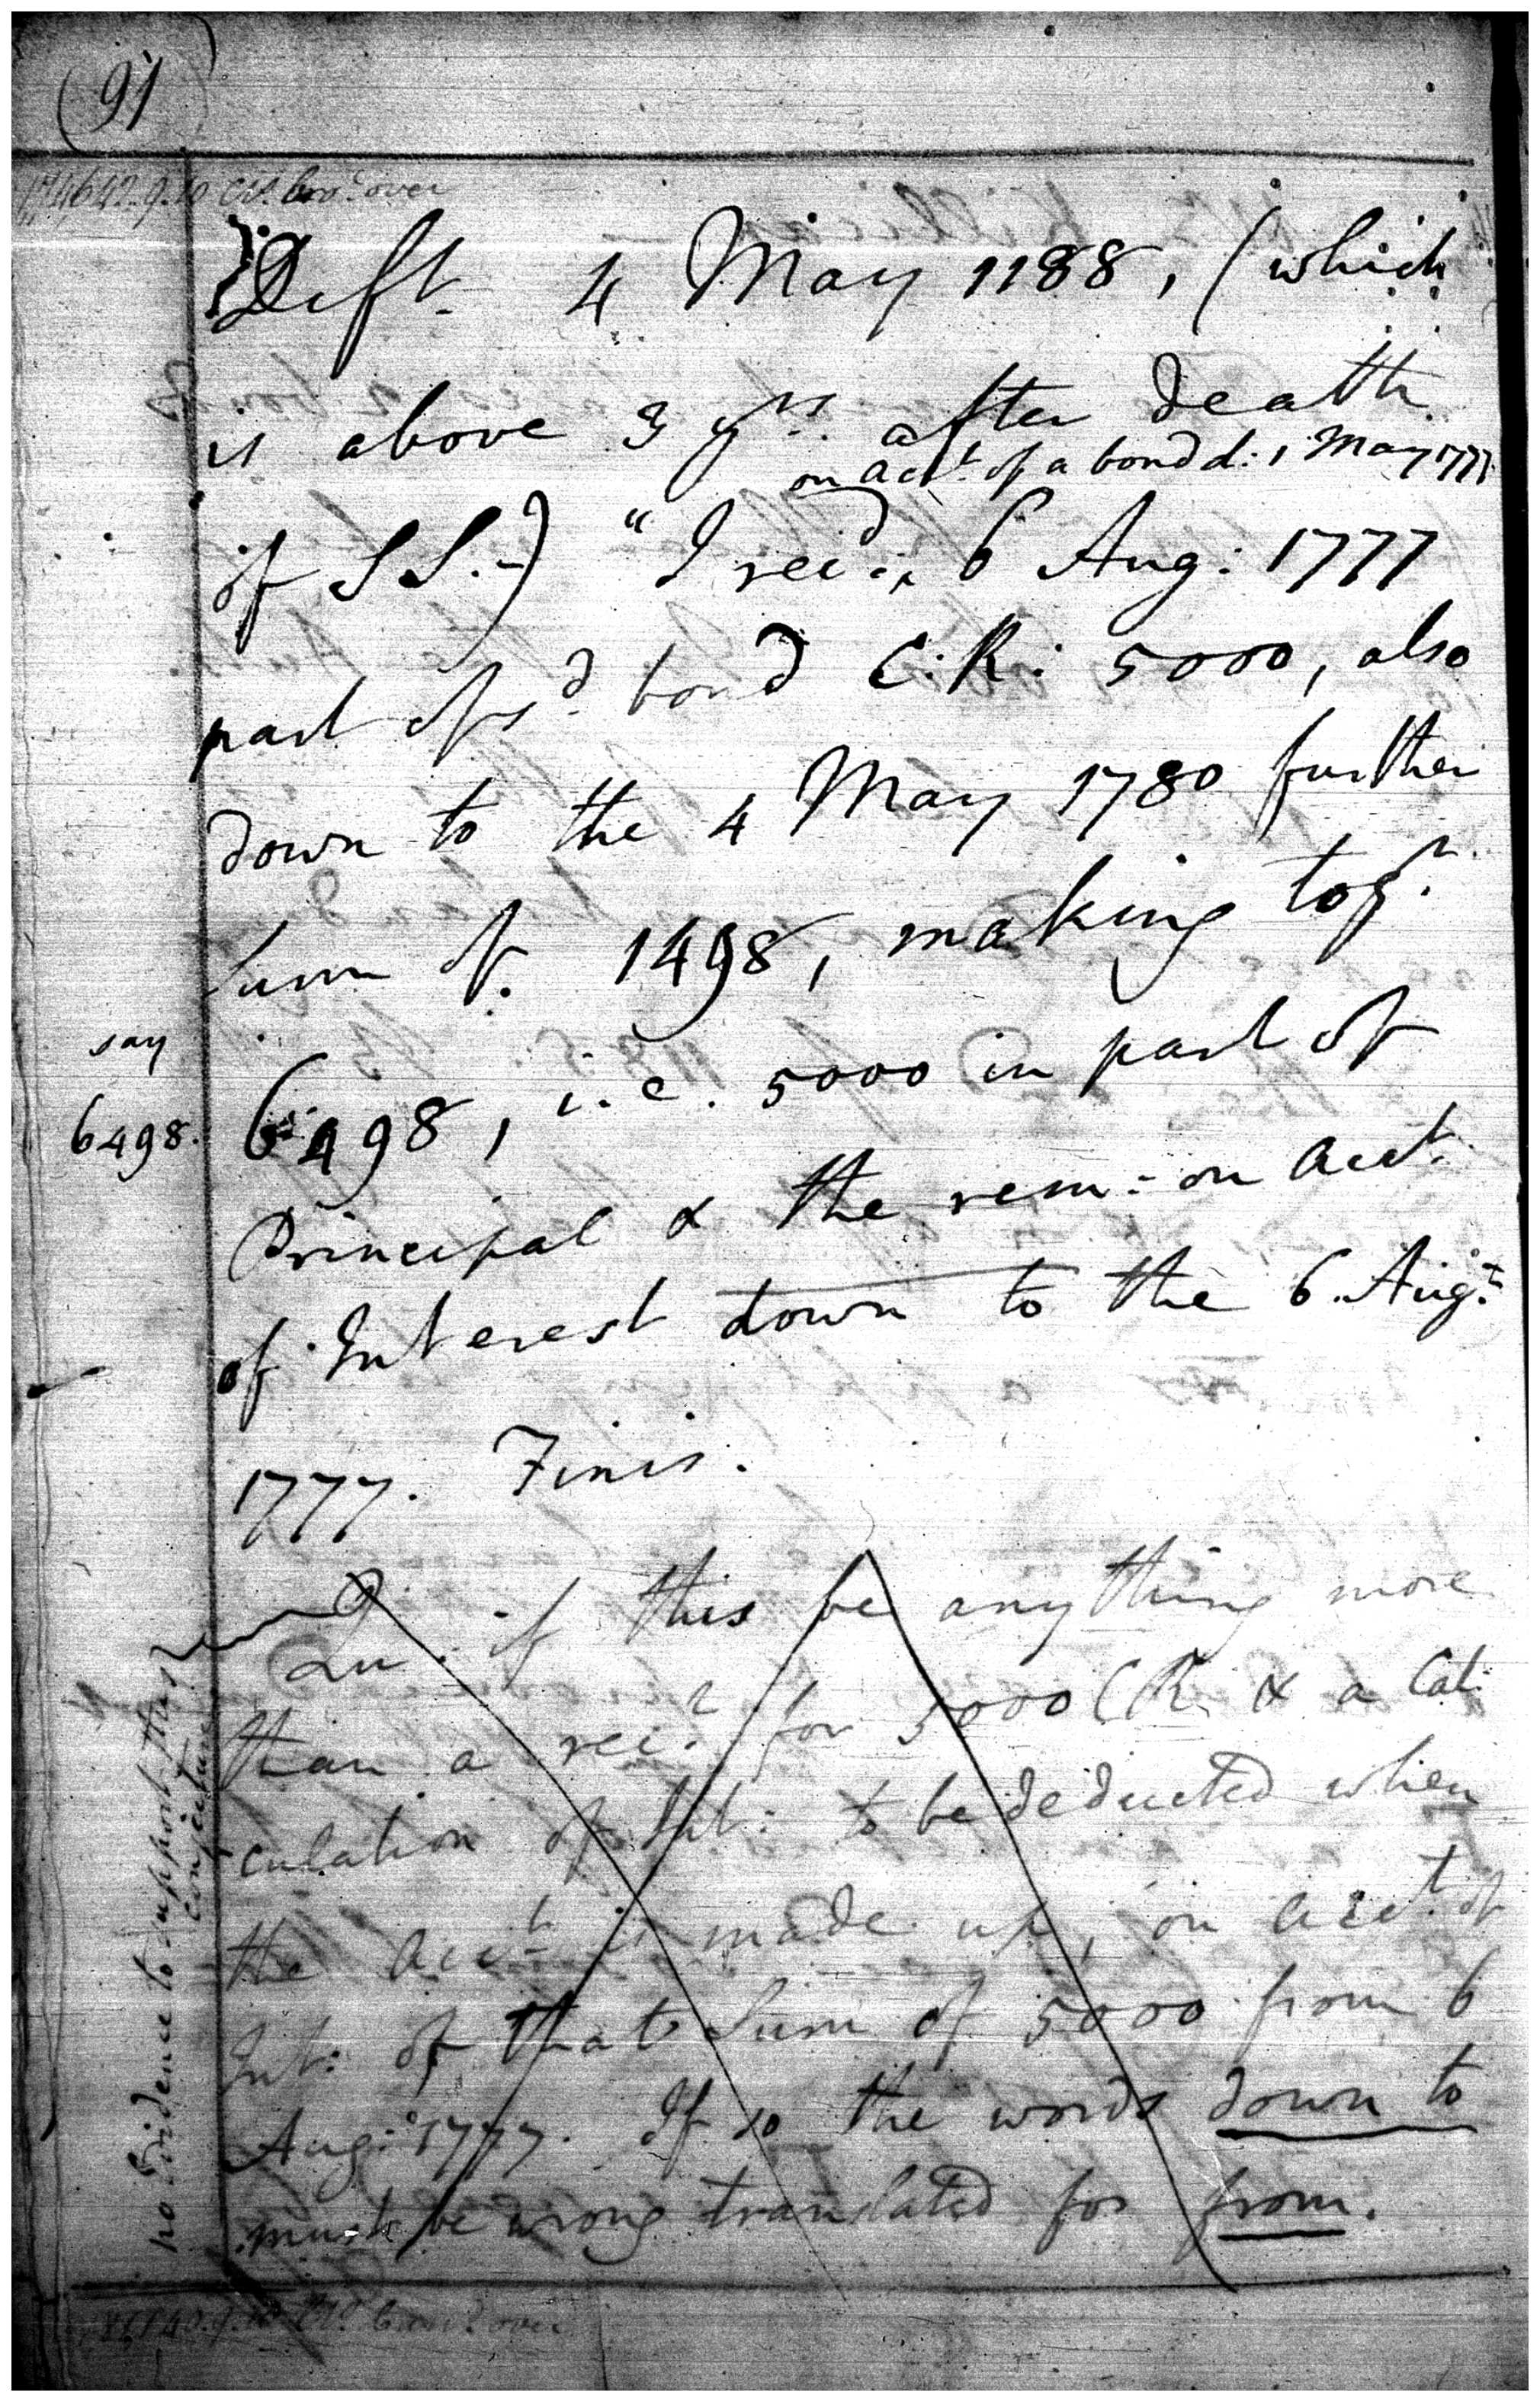 (91)
Deft. 4 May 1188, (which
is above 3 yrs. after death
on acct. of a bond d: 1 May 1777
of S S.-) "I recd:, 6 Aug: 1777
part of sd. bond C:R: 5000, also
down to the 4 May 1780 further
Sum of. 1498, making togr.
say
6498.
6498, i.e. 5000 in part of
Principal & the rem:- on acct.
of Interest down to the 6. Augt:
1777. Finis.
Qu. if this be any thing more
than a rect. for 5000 CR. & a Cal:
culation of Int: to be deducted when
the acct. is made up, on acct. of
Int: of that Sum of 5000 from 6
Aug: 1777. If so the words down to
must be wrong translated for from.
no Evidence to support this
Conjecture